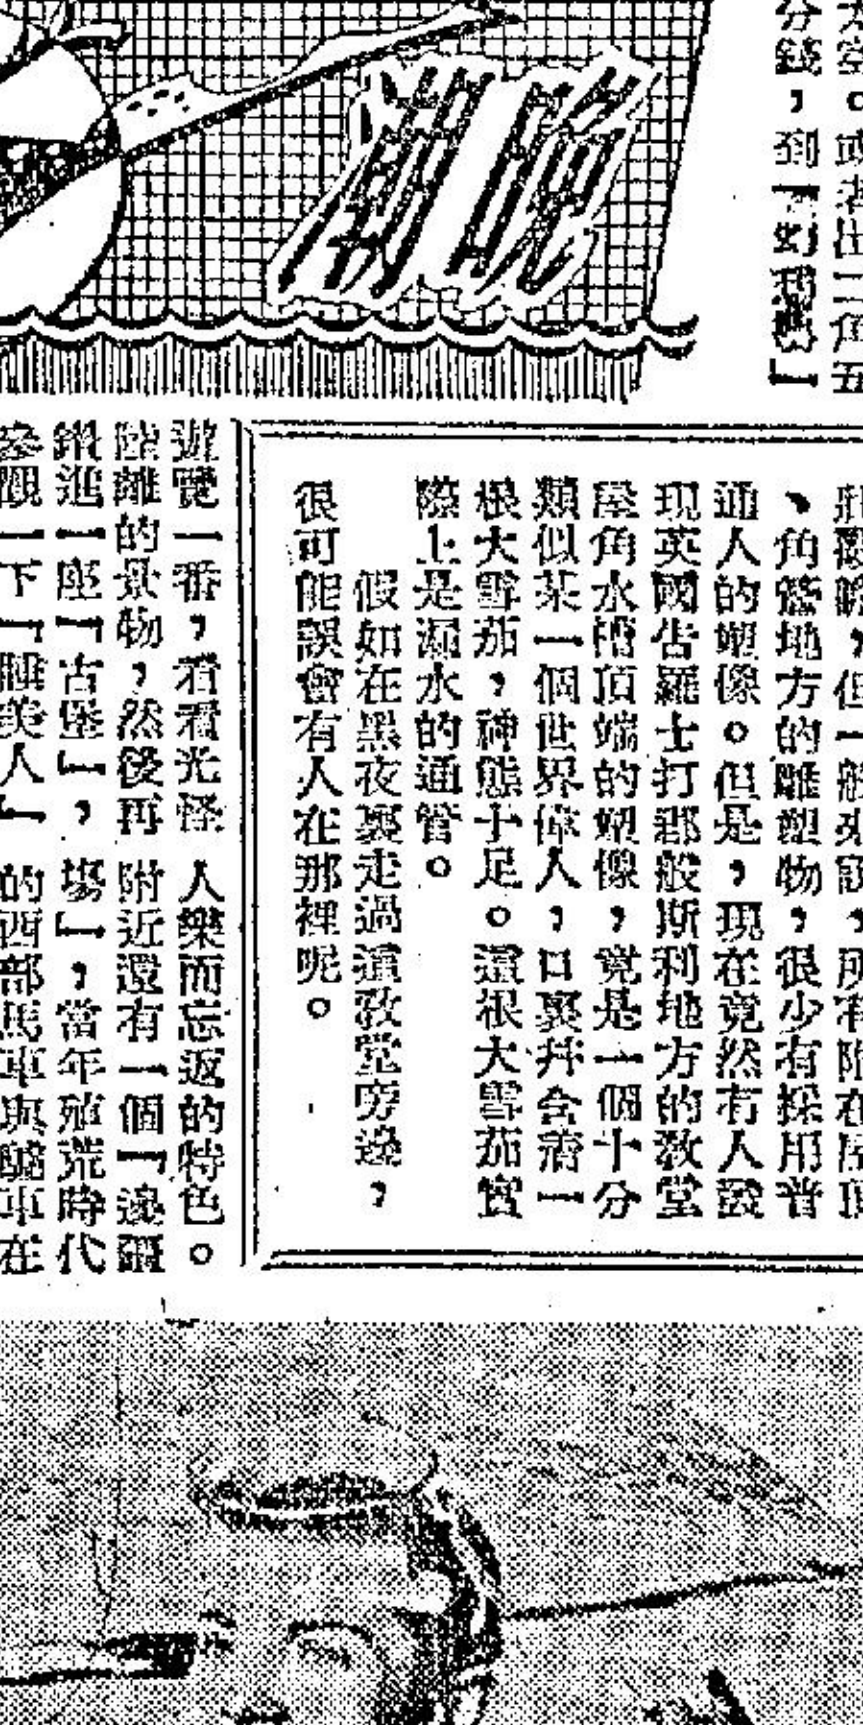 晚潮
太空。或者出二角五
分錢,到「幻想島」
,但一般來說,所有附在屋頂
、角簷地方的雕塑物,很少有採用普
通人的塑像。但是,現在竟然有人發
現英國告羅士打郡般斯利地方的教堂
屋角水槽頂端的塑像,竟是一個十分
類似某一個世界偉人,口裏并含着一
根大雪茄,神態十足。這根大雪茄實
際上是漏水的通管。
假如在黑夜裏走過這教堂旁邊,
很可能誤會有人在那裡呢。
遊覽一番,看看光怪
陸離的景物,然後再
鑽進一座「古堡」,
參觀一下「睡美人」
人樂而忘返的特色。
附近還有一個「邊疆
塲」,當年殖荒時代
的西部馬車與驢車在